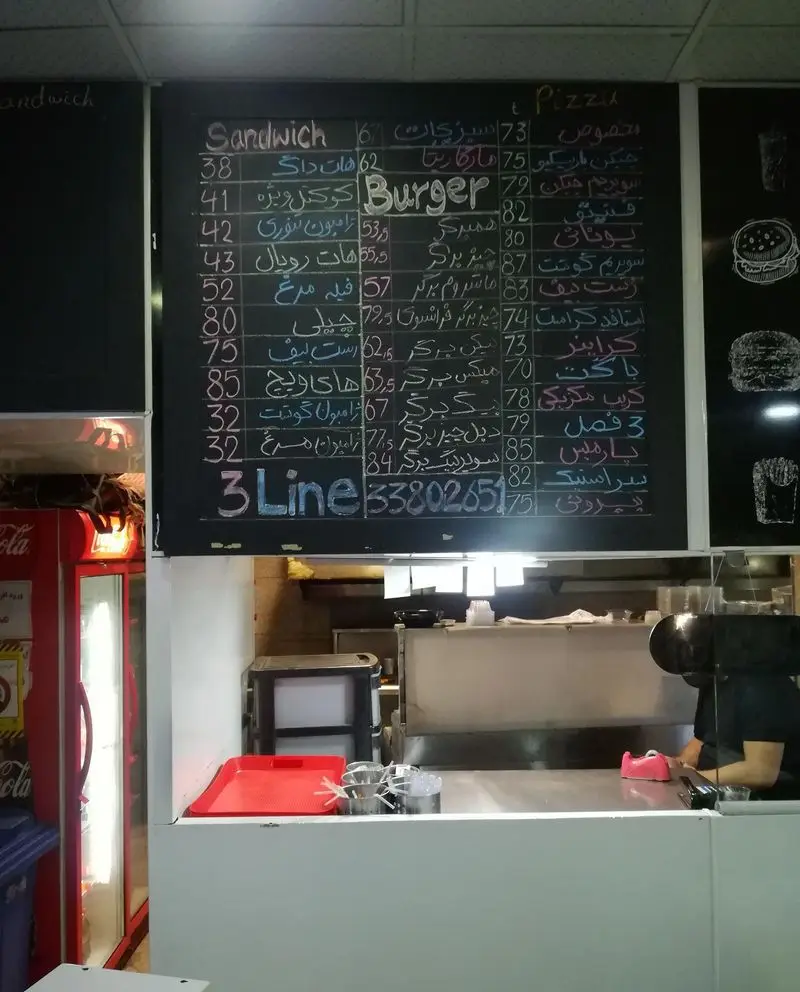 andwich
t Pizza
Sandwich
38 هات داگ
41 کوکتل ویژه
42 ژامبون تنوری
43 هات رویال
52 فیله مرغ
80 چیلی
75 رست بیف
85 های ویچ
32 ژامبون گوشت
32 ژامبون مرغ
3 Line 33802651
67 سبزیجات
62 مارگاریتا
Burger
53,5 همبرگر
55,5 چیز برگر
57 ماشروم برگر
79,5 چیز برگر فرانسوی
62,5 چیکن برگر
63,5 میکس برگر
67 بیگ برگر
77,5 دبل چیز برگر
84 سوپر بیگ برگر
73 مخصوص
75 چیکن باربیکیو
79 سوپریم چیکن
82 فنتیق
80 یونانی
87 سوپریم گوشت
83 رست بیف
74 استافد کراست
73 کراینز
70 باگت
78 کریپ مکزیکی
79 3 فصل
85 پارمیس
82 سیر استیک
75 پپرونی
Cola
Cola